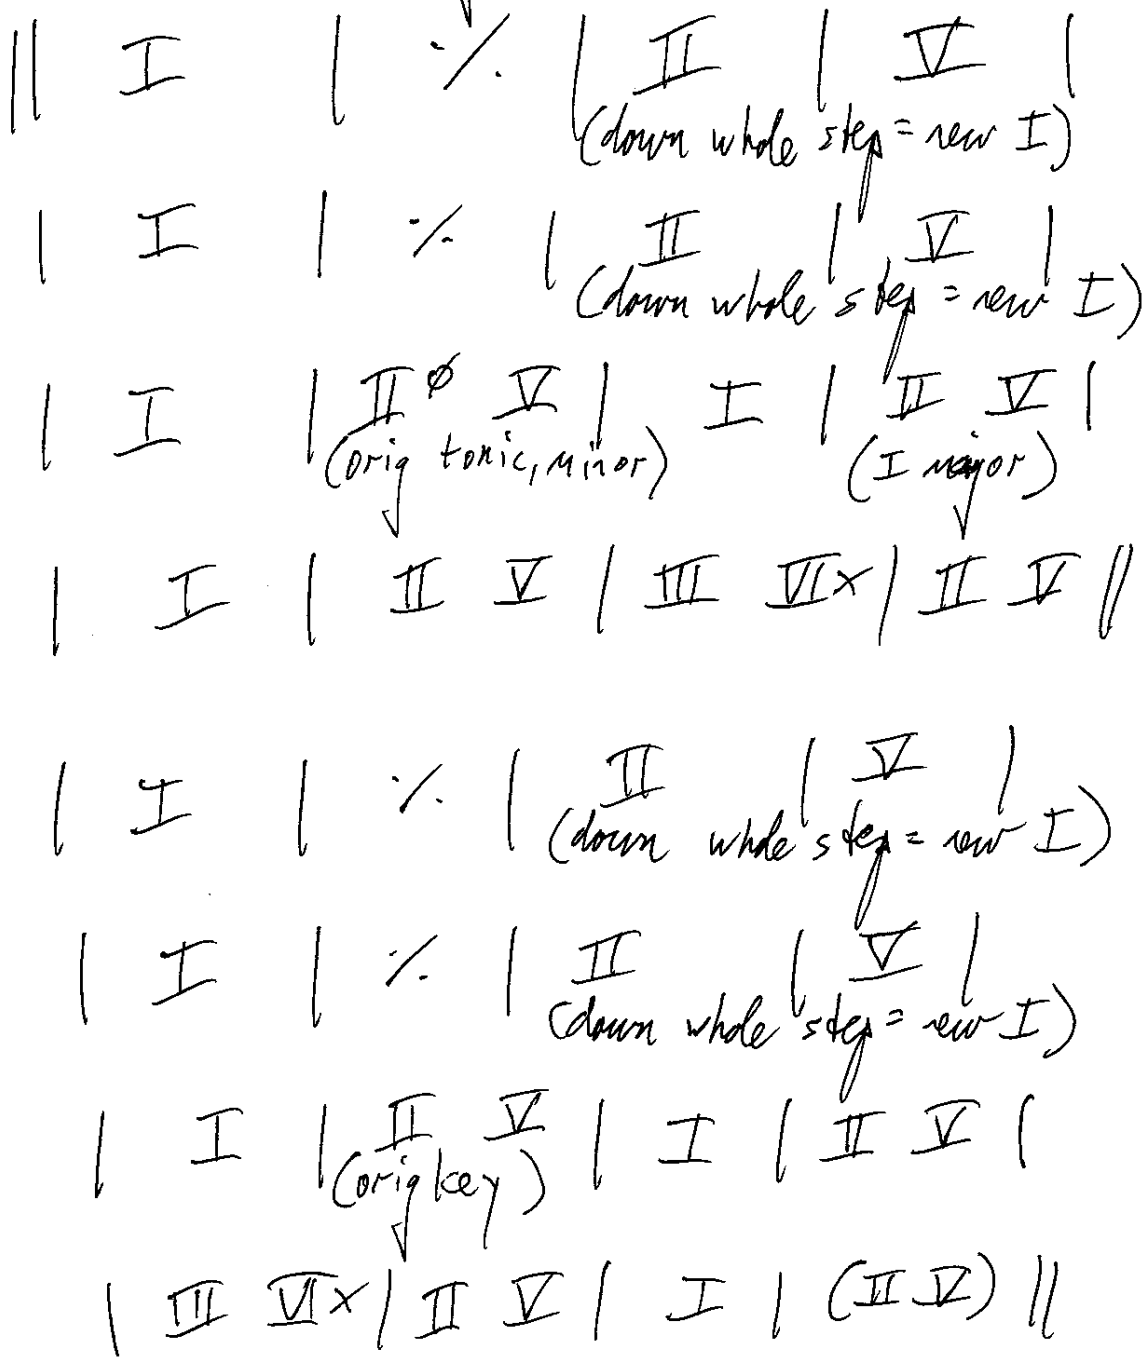 || I | ٪ | II | V |
(down whole step = new I)
| I | ٪ | II | V |
(down whole step = new I)
| I | IIø V | I | II V |
(orig tonic, minor) (I major)
| I | II V | III VIx | II V ||
| I | ٪ | II | V |
(down whole step = new I)
| I | ٪ | II | V |
(down whole step = new I)
| I | II V | I | II V |
(orig key)
| III VIx | II V | I | (II V) ||